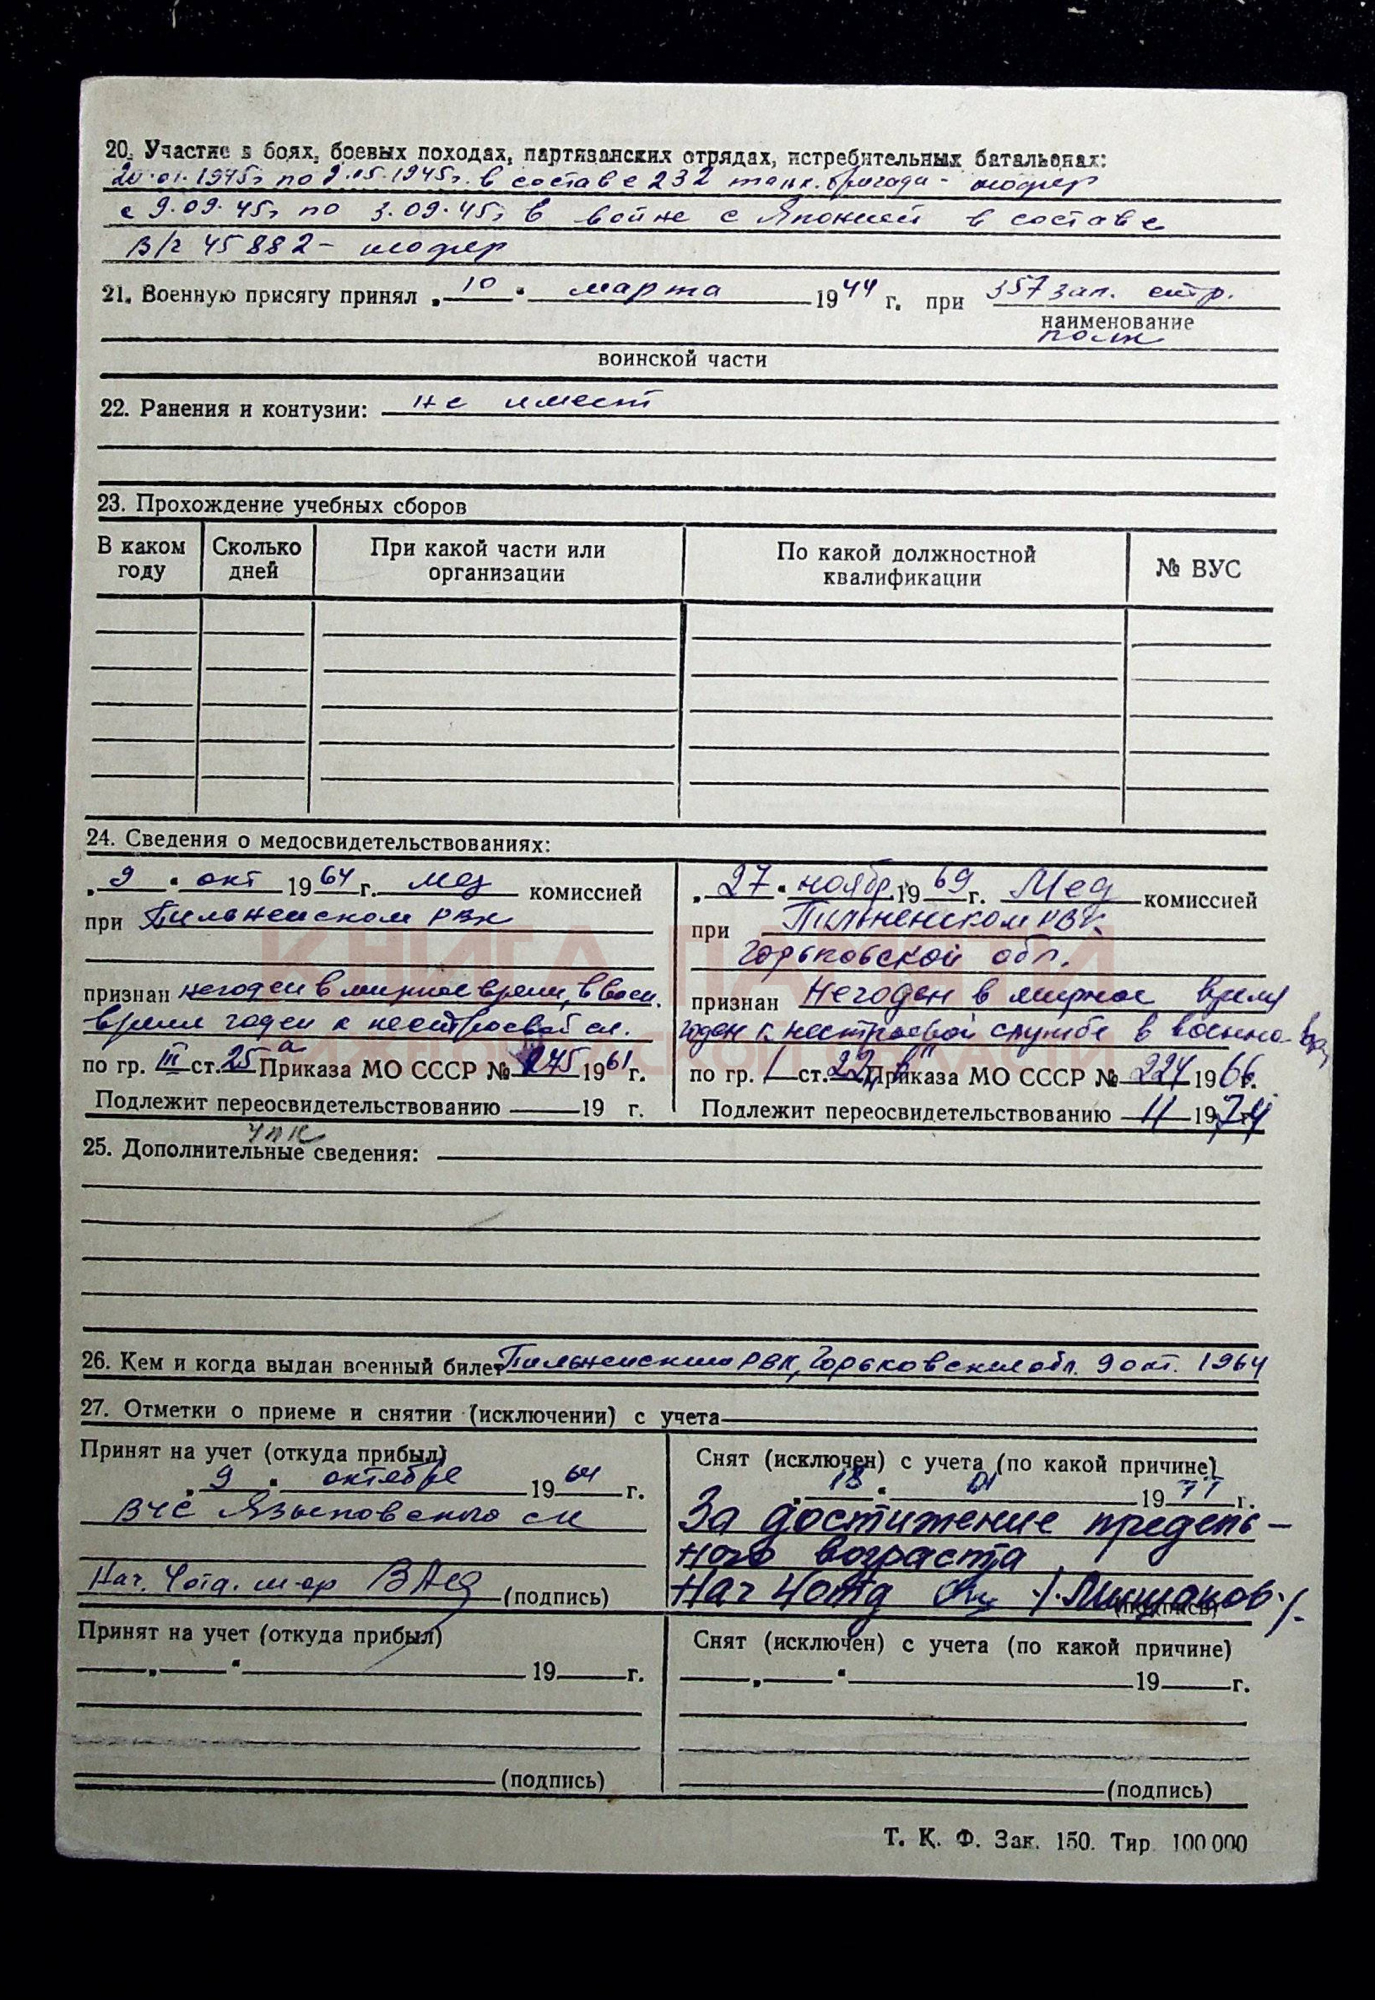 20. Участие в боях, боевых походах, партизанских отрядах, истребительных батальонах:
20.01.1945г по 9.05.1945г. в составе 232 танк. бригады - шофер
с 9.09.45г по 3.09.45г в войне с Японией в составе
В/г 45882 - шофер
21. Военную присягу принял „10“ марта 1944 г. при 357 зап. стр.
наименование
полк
воинской части
22. Ранения и контузии: не имеет
23. Прохождение учебных сборов
В каком году Сколько дней При какой части или организации По какой должностной квалификации № ВУС
24. Сведения о медосвидетельствованиях:
„9“ окт 1964 г. мед комиссией
при Пильненском РВК
признан негоден в мирное время, в воен.
время годен к нестроевой сл.
по гр. III ст. 25а Приказа МО СССР № 175 1961 г.
Подлежит переосвидетельствованию 19 г.
„27“ ноябр 1969 г. Мед комиссией
при Пильненском РВК
Горьковской обл.
признан Негоден в мирное время
годен к нестроевой службе в военное вр.
по гр. 1 ст. 22 „в“ Приказа МО СССР № 224 1966 г.
Подлежит переосвидетельствованию 11 1974
25. Дополнительные сведения:
26. Кем и когда выдан военный билет Пильненским РВК, Горьковской обл. 9 окт. 1964
27. Отметки о приеме и снятии (исключении) с учета
Принят на учет (откуда прибыл)
„9“ октября 1964 г.
ВУС Языковского с/с
Нач. 4 отд. м-ор (подпись)
Снят (исключен) с учета (по какой причине)
„18“ 01 1977 г.
За достижение предель-
ного возраста
Нач 4 отд
(подпись)
Принят на учет (откуда прибыл)
„ “ 19 г.
(подпись)
Снят (исключен) с учета (по какой причине)
„ “ 19 г.
(подпись)
Т. К. Ф. Зак. 150. Тир. 100 000
КНИГА ПАМЯТИ
НИЖЕГОРОДСКОЙ ОБЛАСТИ